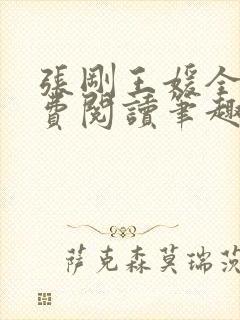 張剛王媛全
費閱讀筆趣
萨克森莫瑞茨